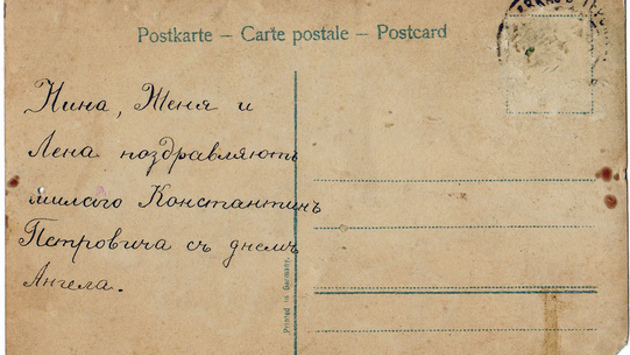 Postkarte – Carte postale – Postcard
Нина, Женя и
Лена поздравляютъ
милаго Константинъ
Петровича съ днемъ
Ангела.
Printed in Germany.